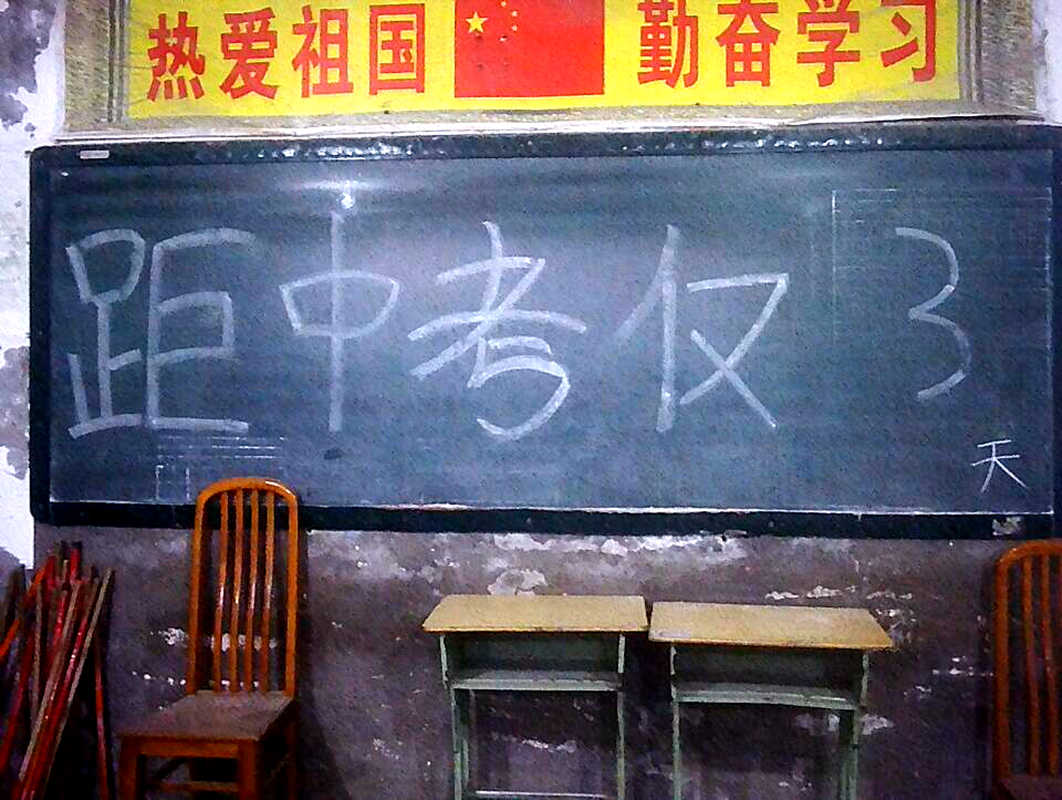 热爱祖国 勤奋学习
距中考仅3
天